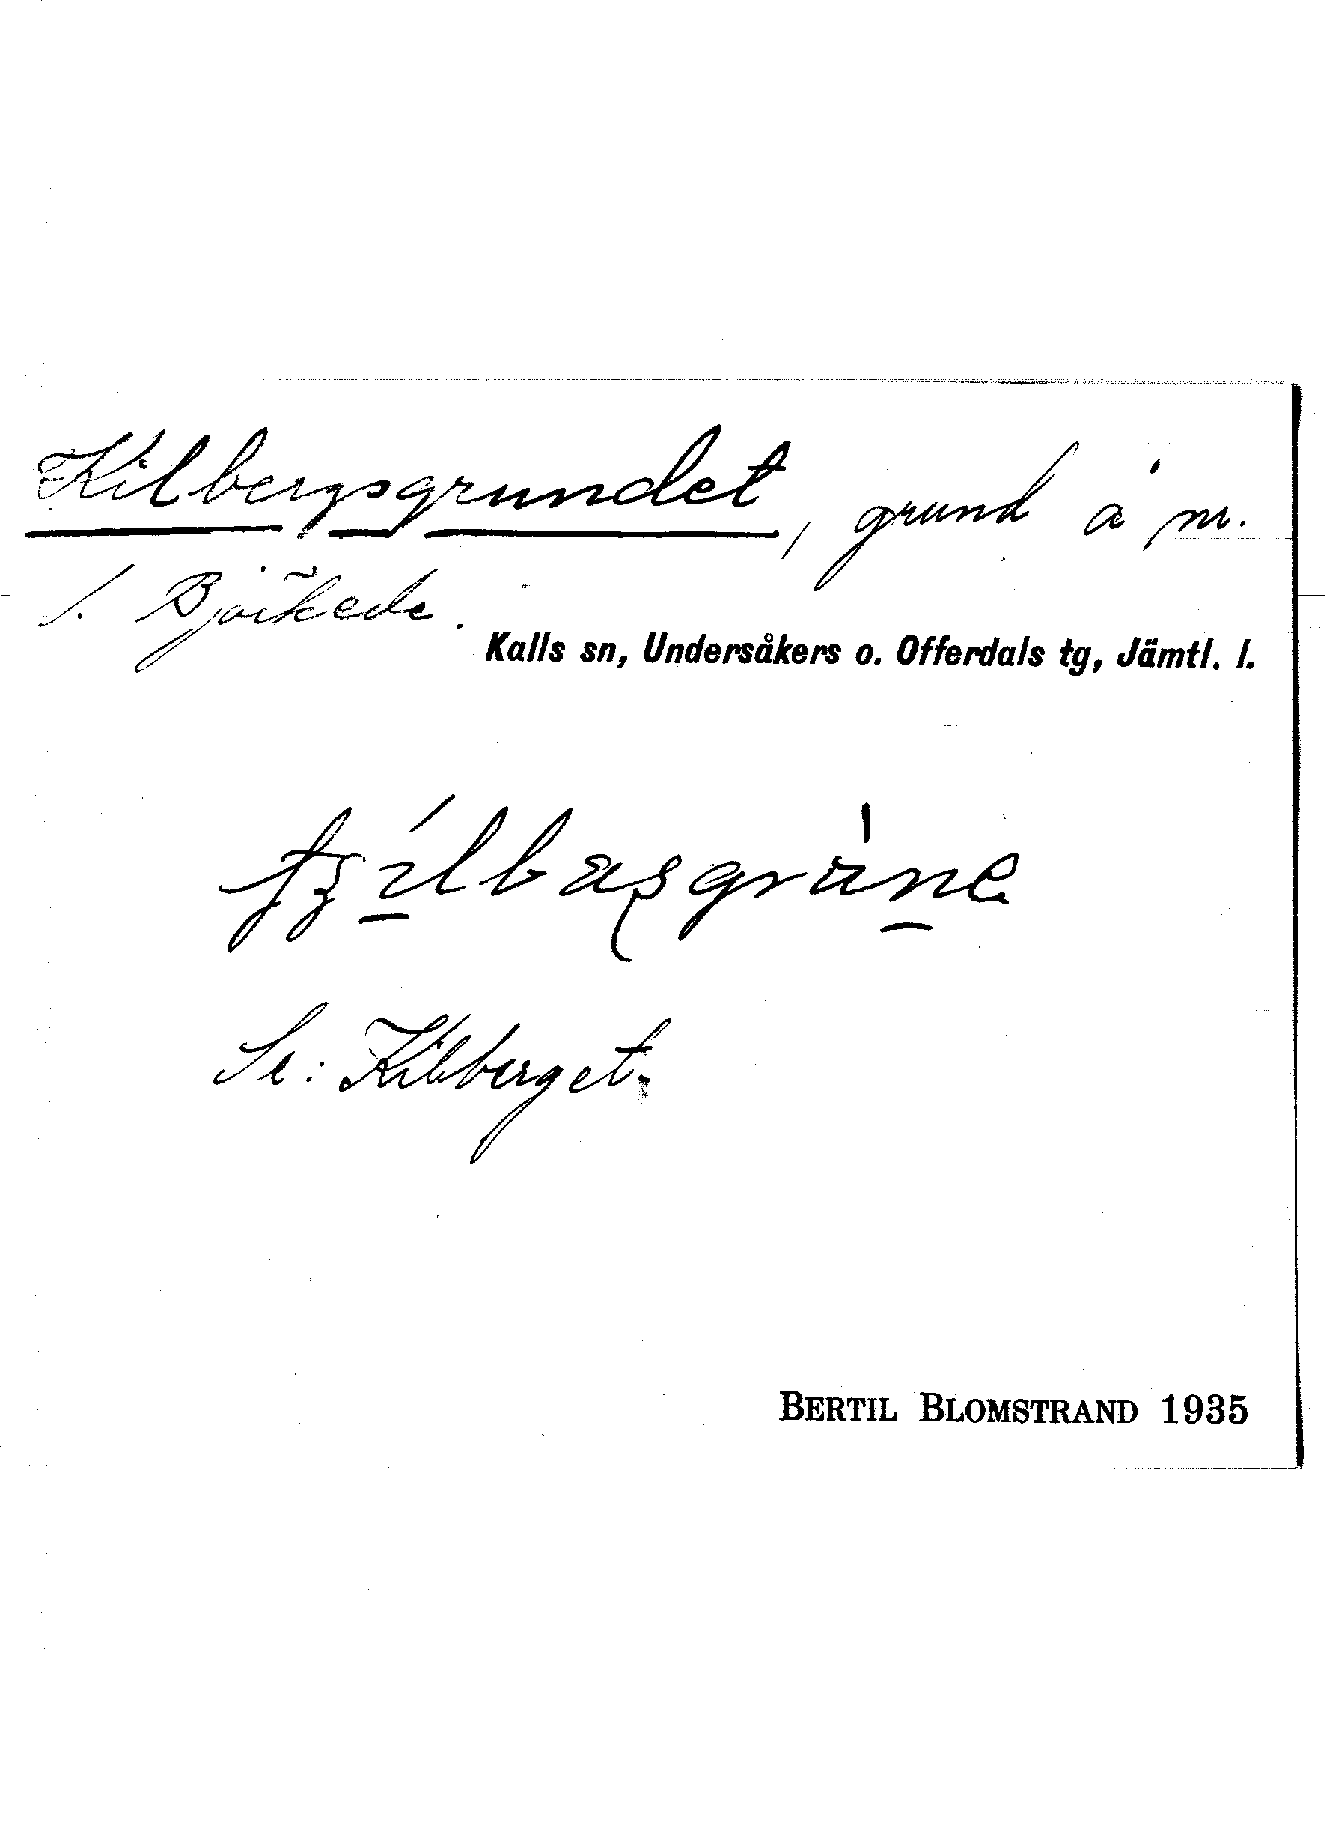 Kilbergsgrundet, grund å nr.
1. Björkede.
Kalls sn, Undersåkers o. Offerdals tg, Jämtl. l.
Se: Kilberget.
BERTIL BLOMSTRAND 1935